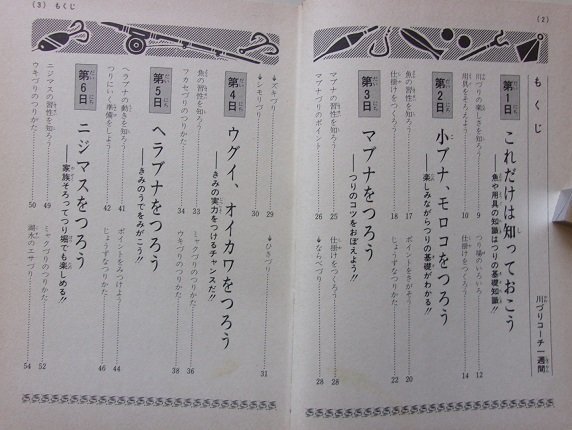 (2)
もくじ
川づりコーチ一週間
第1日
これだけは知っておこう
――魚や用具の知識はつりの基礎知識!!
川づりの楽しさを知ろう 9
用具をそろえよう 10
つり場のいろいろ 12
仕掛けをつくろう 14
第2日
小ブナ、モロコをつろう
――楽しみながらつりの基礎がわかる!!
魚の習性を知ろう 17
仕掛けをつくろう 18
ポイントをさがそう 20
じょうずなつりかた 22
第3日
マブナをつろう
――つりのコツをおぼえよう!!
マブナの習性を知ろう 25
マブナづりのポイント 26
仕掛けをつくろう 28
↓ならべづり 28
(3) もくじ
↓ズキづり 29
↓シモリづり 30
↓ひきづり 31
第4日
ウグイ、オイカワをつろう
――きみの実力をつけるチャンスだ!!
魚の習性を知ろう 33
フカセづりのつりかた 34
ミャクづりのつりかた 36
ウキづりのつりかた 38
第5日
ヘラブナをつろう
――きみのうでをみがこう!!
ヘラブナの動きを知ろう 41
つりにいく準備をしよう 42
ポイントをみつけよう 44
じょうずなつりかた 46
第6日
ニジマスをつろう
――家族そろってつり堀でも楽しめる!!
ニジマスの習性を知ろう 49
ウキづりのつりかた 50
ミャクづりのつりかた 52
湖水のエサづり 54